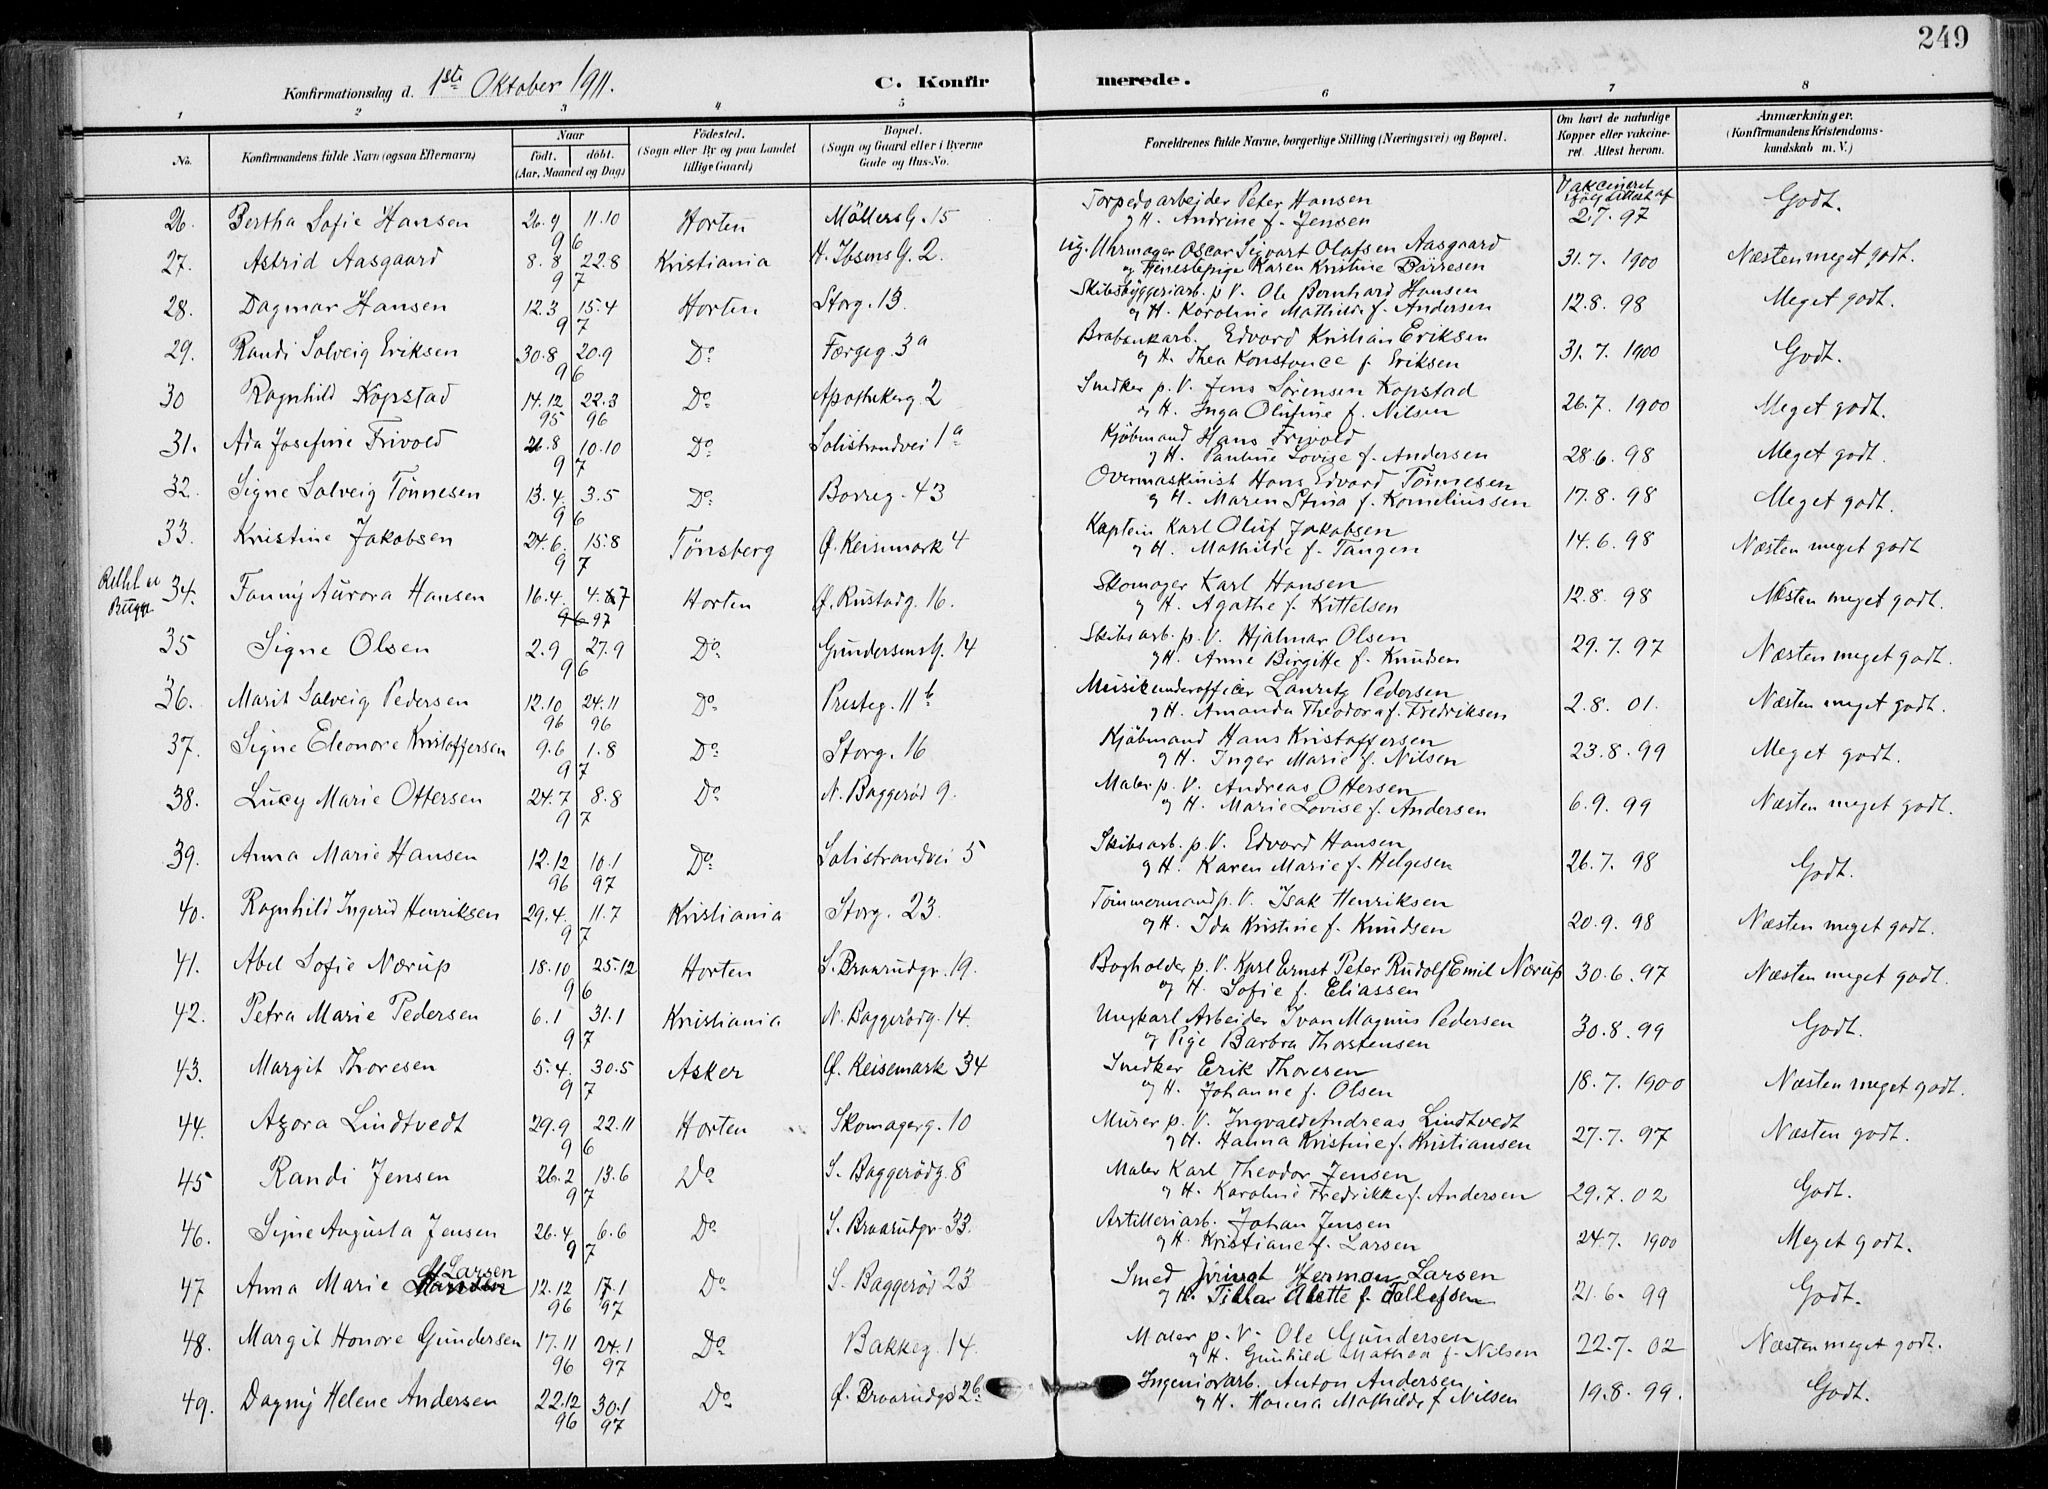 249
Konfirmationsdag d. 1ste Oktober 1911. C. Konfirmerede.
1 2 3 4 5 6 7 8
No. Konfirmandens fulde Navn (ogsaa Efternavn) Naar født. døbt. (Aar, Maaned og Dag) Fødested. (Sogn eller By og paa Landet tillige Gaard) Bopæl. (Sogn og Gaard eller i Byerne Gade og Hus-No. Forældrenes fulde Navne, borgerlige Stilling (Næringsvei) og Bopæl. Om havt de naturlige Kopper eller vakcineret. Attest herom. Anmærkninger. (Konfirmandens Kristendomskundskab m. V.)
26. Bertha Sofie Hansen 26.9 11.10 96 Horten Möllers G. 15 Torpedoarbejder Peter Hansen
og H. Andrine f. Jensen Vakcineret ifølg Attest af 2.7.97 Godt.
27. Astrid Aasgaard 8.8 22.8 97 Kristiania H. Ibsens G. 2. Ug. Uhrmager Oscar Sigvart Olafsen Aasgaard
og Tjenestepige Karen Kristine Børresen 31.7.1900 Næsten meget godt.
28. Dagmar Hansen 12.3 15.4 97 Horten Storg. 13. Skibsbyggeriarb. p V. Ole Bernhard Hansen
og H. Karoline Mathilde f. Andersen 12.8.98 Meget godt.
29. Randi Solveig Eriksen 30.8 20.9 96 Do Færgeg. 3a Edvard Kristian Eriksen
og H. Thea Konstance f. Eriksen 31.7.1900 Godt.
30 Ragnhild Kopstad 14.12 95 22.3 96 Do Apothekerg. 2 Snedker p. V. Jens Sørensen Kopstad
og H. Inga Olufine f. Nilsen 26.7.1900 Meget godt.
31. Ada Josefine Frivold 26.8 10.10 97 Do Solistrandvei 1a Kjöbmand Hans Frivold
og H. Pauline Lovise f. Andersen 28.6.98 Meget godt.
32. Signe Solveig Tönnesen 13.4. 3.5 96 Do Borreg. 43 Overmaskinist Hans Edvard Tönnesen
og H. Maren Stina f. Korneliussen 17.8.98 Meget godt.
33. Kristine Jakobsen 24.6. 15.8 97 Tönsberg Ø. Keisemark 4 Kaptein Karl Oluf Jakobsen
og H. Mathilde f. Tangen 14.6.98 Næsten meget godt
34. Fanny Aurora Hansen 16.4. 4.7 96 97 Horten Ø. Rustadg. 16. Skomager Karl Hansen
og H. Agathe f. Kittelsen 12.8.98 Næsten meget godt.
35 Signe Olsen 2.9 27.9 96 Do Gundersens G. 14 Skibsarb. p. V. Hjalmar Olsen
og H. Anne Birgitte f. Knudsen 29.7.97 Næsten meget godt.
36. Marit Solveig Pedersen 12.10 96 24.11 96 Do Presteg. 11b Musikunderofficer Lauritz Pedersen
og H. Amanda Theodora f. Fredriksen 2.8.01. Næsten meget godt.
37. Signe Eleonore Kristoffersen 9.6 1.8 97 Do Storg. 16 Kjöbmand Hans Kristoffersen
og H. Inger Marie f. Nilsen 23.8.99 Meget godt.
38. Lucy Marie Ottersen 24.7 8.8 97 Do N. Baggerød 9. Maler p. V. Andreas Ottersen
og H. Marie Lovise f. Andersen 6.9.99 Næsten meget godt.
39. Anna Marie Hansen 12.12 96 10.1 97 Do Solistrandvei 5 Skibsarb. p. V. Edvard Hansen
og H. Karen Marie f. Helgesen 26.7.98 Godt.
40. Ragnhild Ingerid Henriksen 29.4. 11.7 97 Kristiania Storg. 23. Tömmermand p. V. Isak Henriksen
og H. Ida Kristine f. Knudsen 20.9.98 Næsten meget godt.
41. Abel Sofie Nærup 18.10 25.12 96 Horten S. Braarudgr. 19. Bogholder p. V. Karl Ernst Peter Rudolf Emil Nærup
og H. Sofie f. Eliassen 30.6.97 Næsten meget godt.
42. Petra Marie Pedersen 6.1 31.1 97 Kristiania N. Baggerödg. 14. Ungkarl Arbeider Ivan Magnus Pedersen
og Pige Barbra Thorstensen 30.8.99 Godt.
43. Margit Thoresen 5.4. 30.5 97 Asker Ø. Keisemark 34 Snedker Erik Thoresen
og H. Johanne f. Olsen 18.7.1900 Næsten meget godt.
44. Azora Lindtvedt 29.9 22.11 96 Horten Skomagerg. 10 Murer p. V. Ingvald Andreas Lindtvedt
og H. Hanna Kristine f. Kristiansen 27.7.97 Næsten godt.
45 Randi Jensen 26.2 13.6 97 Do S. Baggerödg. 8 Maler Karl Theodor Jensen
og H. Karoline Fredrikke f. Andersen 29.7.02 Godt.
46. Signe Augusta Jensen 26.4. 6.6 97 Do S. Braarudgr. 33. Artilleriarb. Johan Jensen
og H. Kristiane f. Larsen 24.7.1900 Meget godt.
47 Anna Marie Larsen 12.12 96 17.1 97 Do S. Baggeröd 23 Smed Herman Larsen
og H. Alette f. Tallefsen 21.6.99 Godt.
48. Margit Honore Gundersen 17.11 96 24.1 97 Do Bakkeg. 14. Maler p. V. Ole Gundersen
og H. Gunhild Mathea f. Nilsen 22.7.02 Næsten meget godt.
49. Dagny Helene Andersen 22.12 96 30.1 97 Do Ø. Braarudgd 26. Ingeniørarb. Anton Andersen
og H. Hanna Mathilde f Nilsen 19.8.99. Godt.